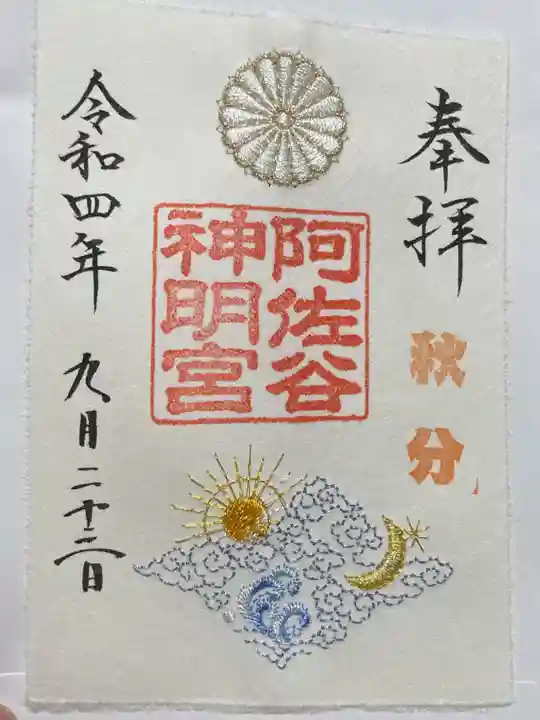 奉拝
秋分
阿佐谷
神明宮
令和四年 九月二十二日